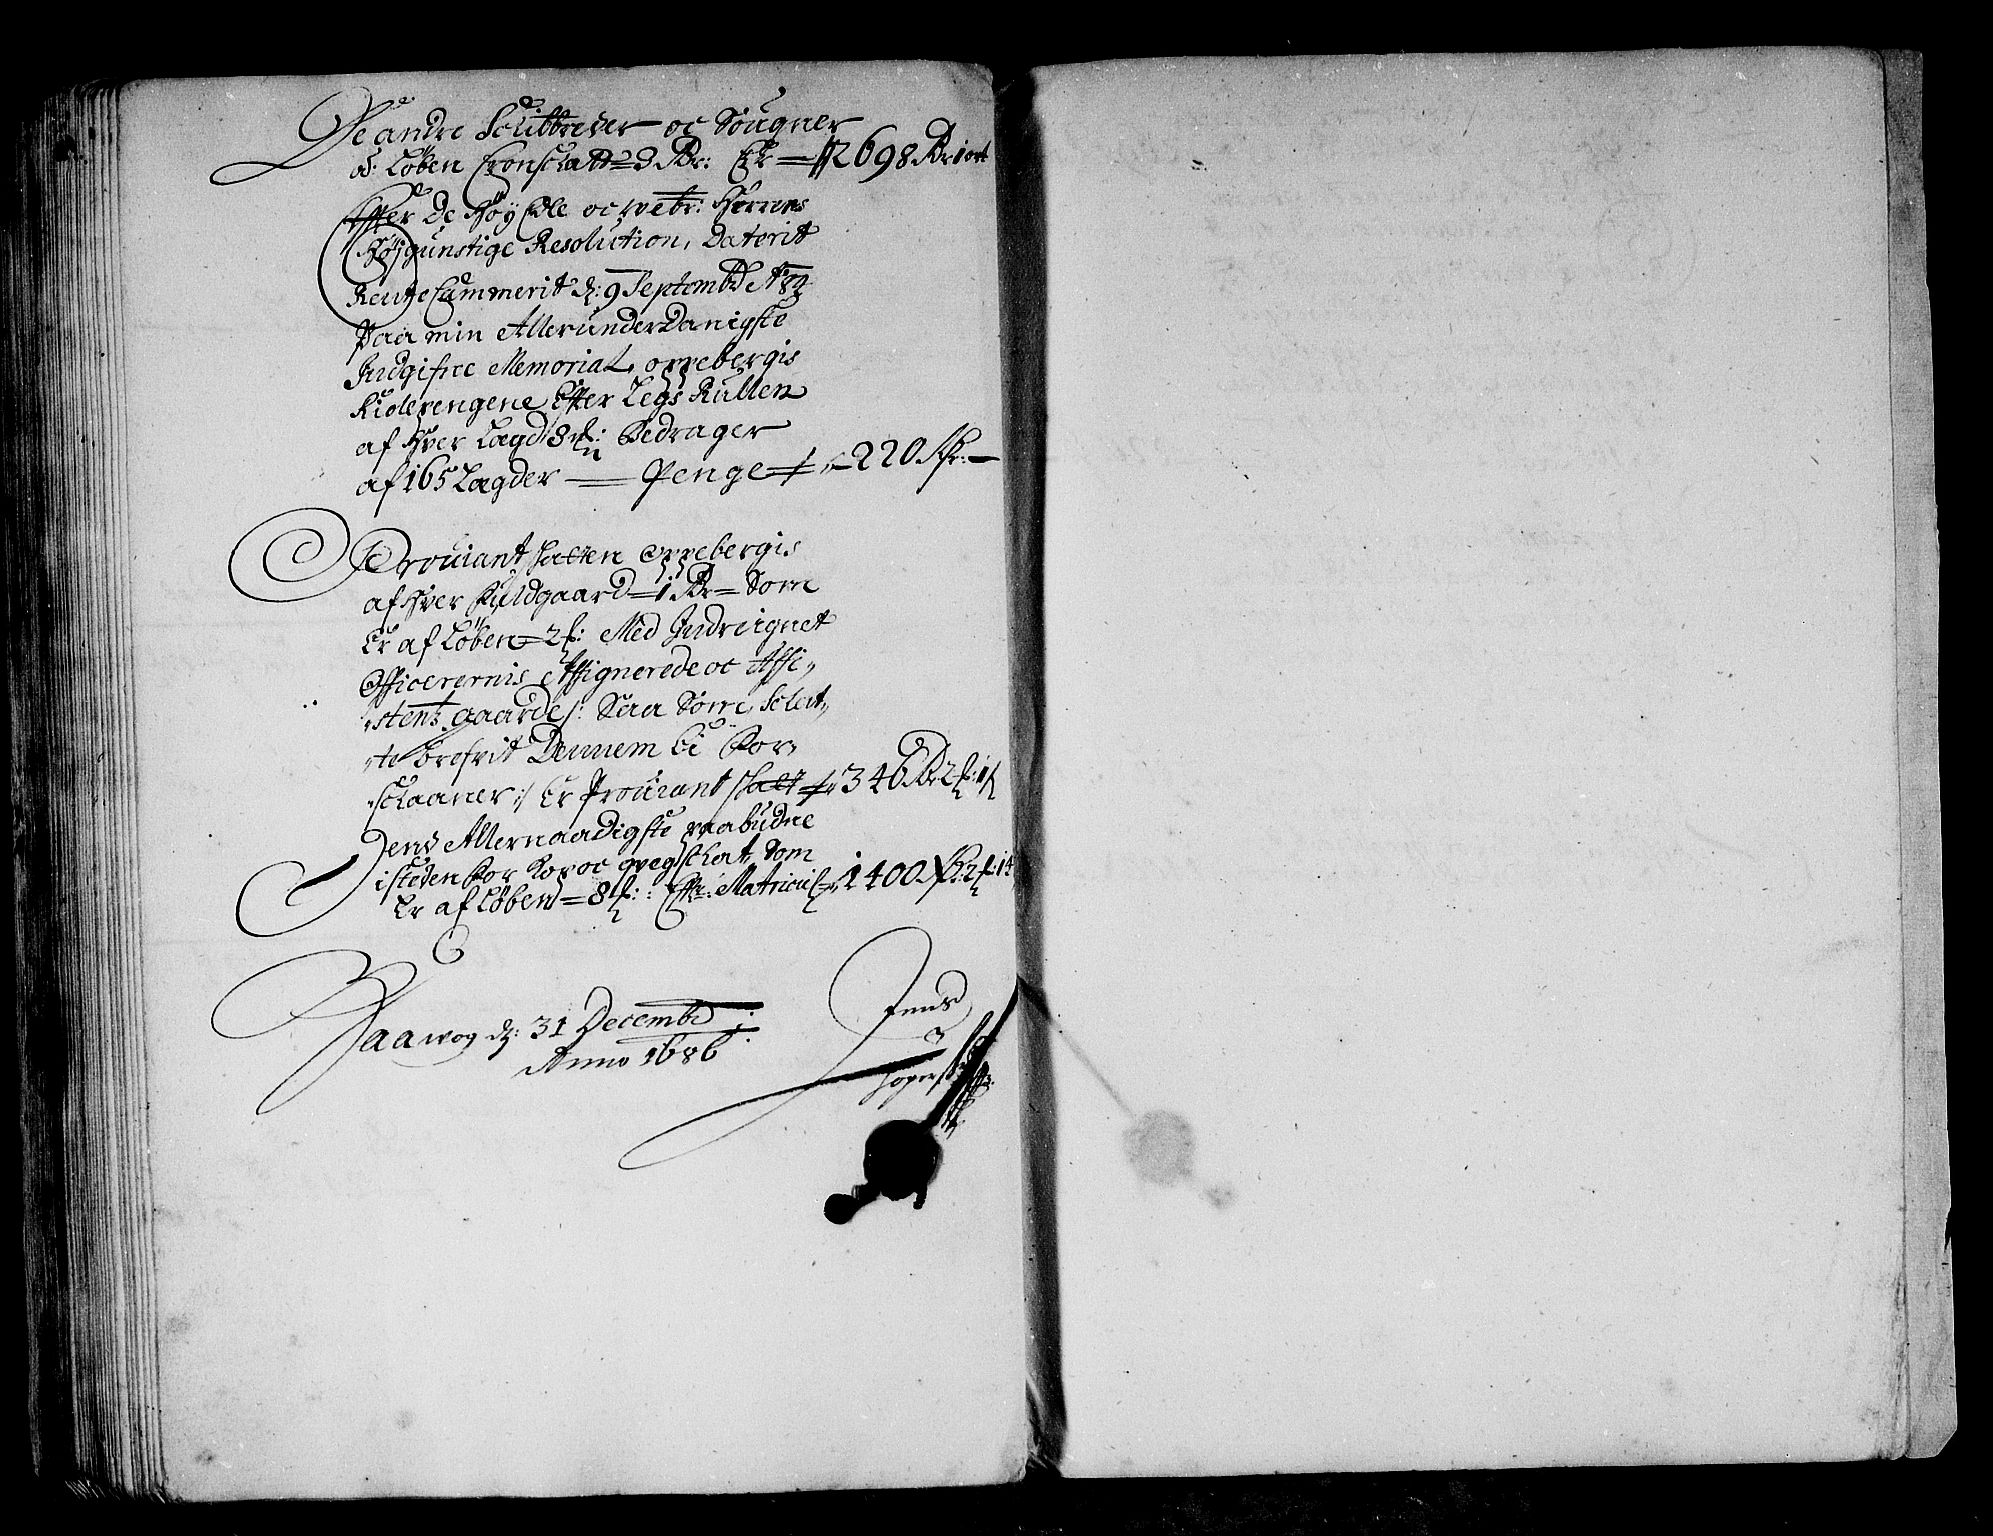 De andre Schibbreder oc Sougner
d: Löben Cronschatt = 3 Rdr: Er = 2698 Rdr 1 ort
Effter De Höy Edle oc welbr: Herrers
Höjgunstige Resolution, Daterit
Rente Cammerit d: 9 Septembr A: 82
Paa min Allerunderdanigste
Indgifne Memorial, oppebergis
Kiolepengene Effter Legs Rullen
af Hver Lægd 8 s: Bedrager
af 165 Lægder — Penge 220 Rdr: —
Proviant Schatten Oppebergis
af Hver Fuldgaard = 1 Rdr = Som
Er af Löben = 2 s: Med Indreignet
Officerernis Assignerede oc Assi„
„stentz gaarde /: Saa Som, Schat„
„te brefvit Dennem Ei For„
„schaaner :/ Er Proviant schatt 346 Rdr 2
Dend Allernaadigste paabudne
isteden for Kop oc qvegschat, Som
Er af Löben = 8 s: Effr: Matricul 1400 2 14
Waawog d: 31 Decembr:
Anno 1686
Jens